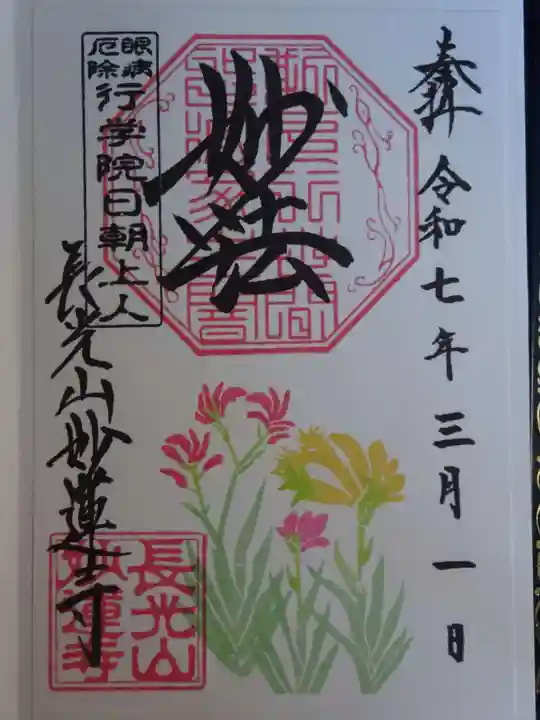 奉拝
令和七年三月一日
妙法
眼病
厄除
行学院日朝上人
長光山妙蓮寺
長光山
妙蓮寺